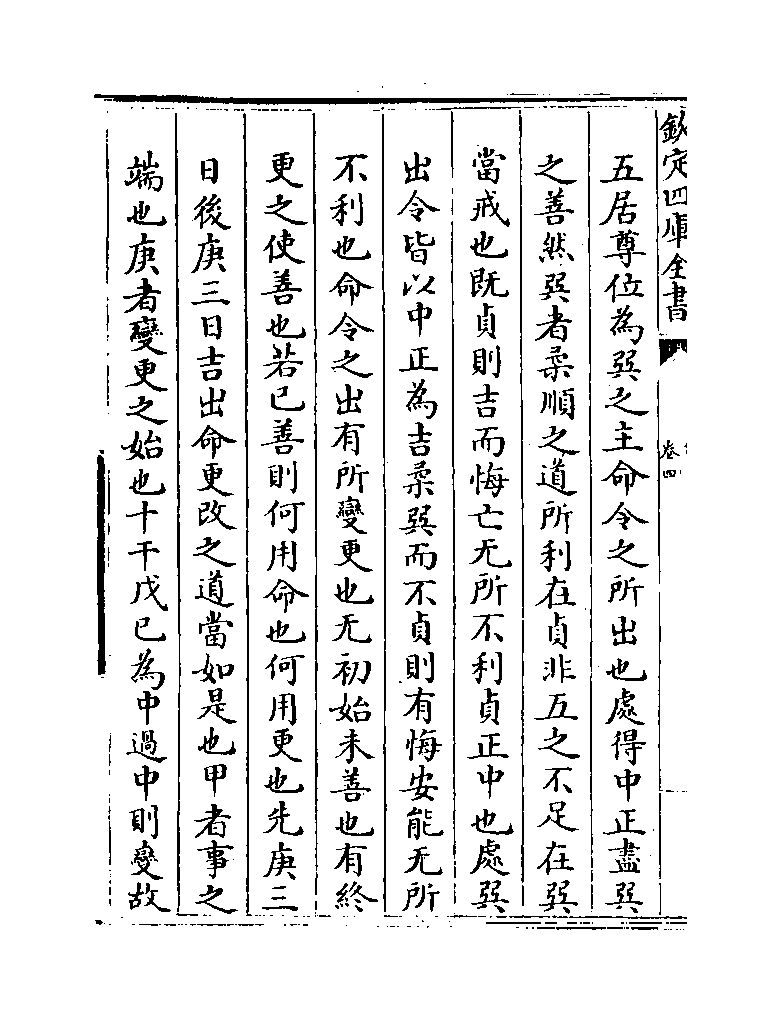 欽定四庫全書
卷四
五居尊位為巽之主命令之所出也處得中正盡巽
之善然巽者柔順之道所利在貞非五之不足在巽
當戒也既貞則吉而悔亡无所不利貞正中也處巽
出令皆以中正為吉柔巽而不貞則有悔安能无所
不利也命令之出有所變更也无初始未善也有終
更之使善也若已善則何用命也何用更也先庚三
日後庚三日吉出命更改之道當如是也甲者事之
端也庚者變更之始也十干戊已為中過中則變故